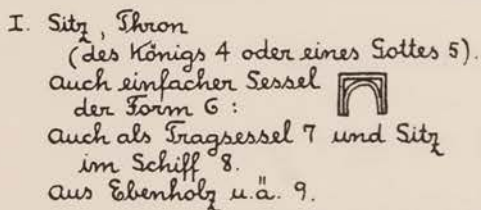 I. Sitz, Thron
(des Königs 4 oder eines Gottes 5).
auch einfacher Sessel
der Form 6 :
auch als Tragsessel 7 und Sitz
im Schiff 8.
aus Ebenholz u. ä. 9.